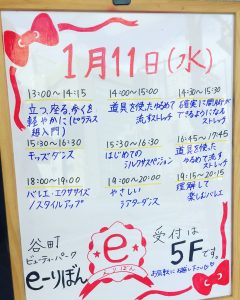 1月11日(水)
13:00〜14:15
立つ、座る、歩くを
軽やかに(ピラティス
超入門)
14:00〜15:00
道具を使ったゆるめて
流すストレッチ
14:30〜15:30
確実に開脚が
できるようになる
ストレッチ
15:30〜16:30
キッズダンス
15:30〜16:30
はじめての
シルクサスペンション
16:45〜17:45
道具を使った
ゆるめて流す
ストレッチ
18:00〜19:00
バレエ・エクササイズ
/スタイルアップ
19:00〜20:00
やさしい
シアターダンス
19:15〜20:15
理解して
楽しむバレエ
谷町
ビューティーパーク
e-りぼん
e
えりぼん
受付は
5Fです。
お気軽にお越し下さい